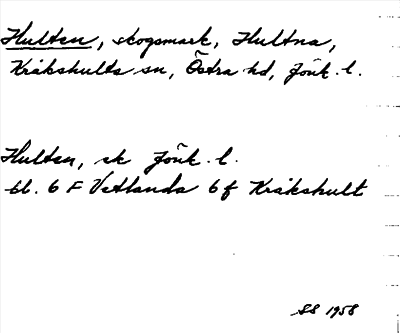 Hulten, skogsmark, Hultna,
Kråkshults sn, Östra hd, Jönk. l.
Hulten, sk Jönk. l.
bl. 6 F Vetlanda 6 f Kråkshult
SS 1958